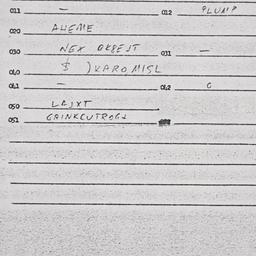 011 — 012 PLUMP
020 AHEME
030 NEX OKBEJT 031 —
040 $ ) KARO MISL
041 — 042 C
050 LAJXT
051 GAINKCUTROGJ